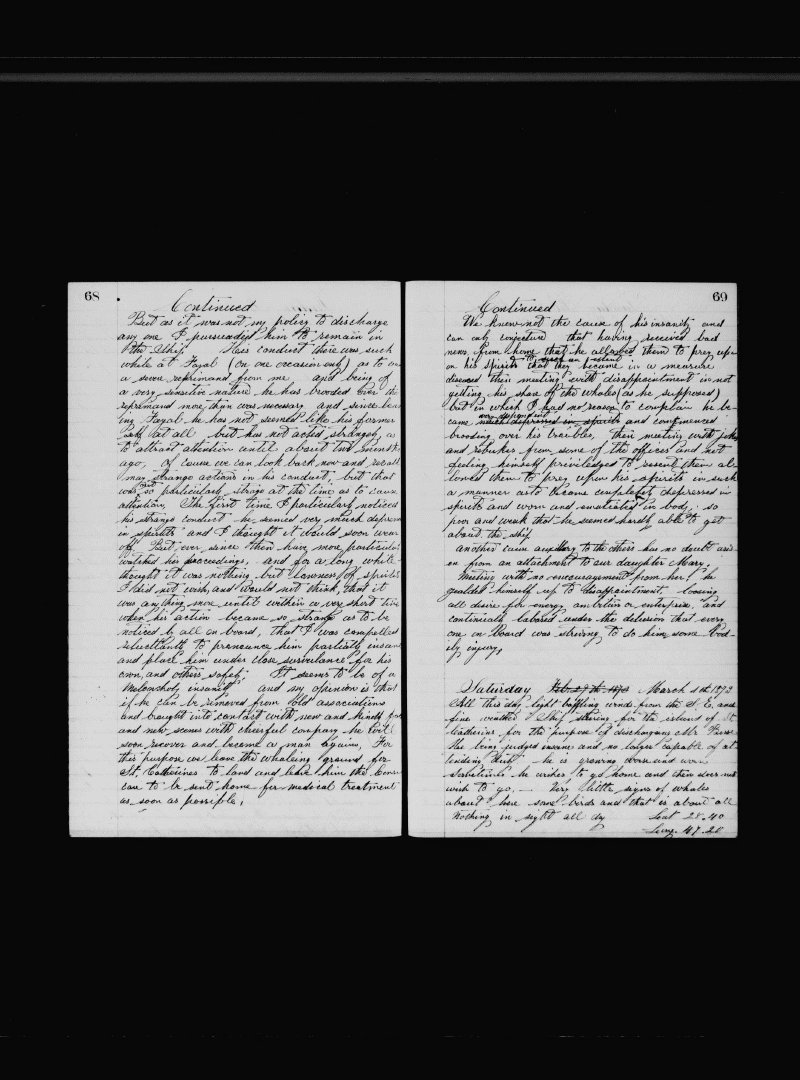 68
Continued
But as it was not my policy to discharge
any one I pursuaded him to remain in
the Ship. His conduct there was such
while at Fayal (on one occasion only) as to
a severe reprimand from me and being of
a very sensitive nature he has brooded over the
reprimand more than was necessary and since
ing Fayal he has not seemed like his former
self at all but has not acted strangely, as
to attract attention until about two months
ago, of course we can look back now and recall
many strange actions in his conduct, but that
was not so particularly strange at the time as to cause
attention. The first time I particularly noticed
his strange conduct he seemed very much
in spirits and I thought it would soon wear
off. But ever since then have more particular
watched his proceedings, and for a long while
thought it was nothing but lowness of spirits
I did not wish, and would not think, that it
was anything more until within a very short time
when his action became so strange as to be
noticed by all on board, that I was compelled
reluctantly to pronounce him partially insane
and place him under close surveilance for his
own, and others safety. It seems to be of a
Melancholy insanity and my opinion is that
if he can be removed from Old associations
and brought into contact with new and kindly
and new scenes with cheerful company he will
soon recover and become a man again, For
this purpose we leave the whaleing ground for
St. Catherines to land and leave him the Consul
can to be sent home for medical treatment
as soon as possible,
69
Continued
We know not the cause of his insanity and
can only conjecture that having received bad
news from home that he allowed them to prey upon
on his spirits that they became in a measure
diseased then meeting with disappointment in not
getting his share of the whales (as he supposed)
but in which I had no reason to complain he be-
very desponding
came much depressed in spirits and commenced
brooding over his troubles, then meeting with jokes
and rebukes from some of the officers and not
feeling himself priviledged to resent them al-
lowed them to prey upon his spirits in such
a manner as to become completely depressed in
spirits and worn and emaciated in body, so
poor and weak that he seemed hardly able to get
about the ship
another cause auxillary to the others has no doubt aris-
en from an attachment to our daughter Mary.
Meeting with no encouragement from her! he
yealded himself up to disappointment. loosing
all desire for energy ambition or enterprise, and
continualy labored under the delusion that every
one on board was striving to do him some bod-
ily injury,
Saturday Feb. 27th 1873 March 1st 1873
All this day light baffling winds from the S. E. and
fine weather Ship steering for the island of St
Catherine for the purpose of discharging Mr
He being judged insane and no longer capable of at-
tending Ship he is growing worn and worn
Sometimes he wishes to go home and then does not
wish to go, — Very little signs of whales
about here some birds and that is about all
Nothing in sight all day Lat 28.40
Long. 47.20